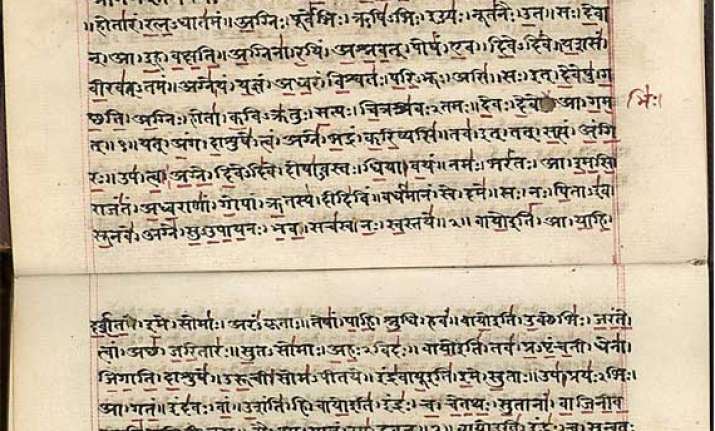 ॥होतारं।रत्नऽधातमं॥अग्निः।पूर्वेभिः।ऋषिभिः।ईड्यः।नूतनैः।उत।सः।देवा
न्।आ।इह।वक्षति॥अग्निना।रयिं।अश्नवत्।पोषं।एव।दिवेऽदिवे।यशसं
वीरवत्ऽतमं॥अग्ने।यं।यज्ञं।अध्वरं।विश्वतः।परिऽभूः।असि।सः।इत्।देवेषु।ग
च्छति॥अग्निः।होता।कविऽक्रतुः।सत्यः।चित्रश्रवःऽतमः॥देवः।देवे।आ।गम भिः।
त्॥१॥यत्।अंग।दाशुषे।त्वं।अग्ने।भद्रं।करिष्यसि।तव।इत्।तत्।सत्यं।अंगि
रः॥उप।त्वा।अग्ने।दिवेऽदिवे।दोषाऽवस्तः।धिया।वयं।नमः।भरंतः।आ।इमसि
राजंतं।अध्वराणां।गोपां।ऋतस्य।दीदिविं॥वर्धमानं।स्वे।दमे॥सः।नः।पिताऽइव
सूनवे।अग्ने।सुऽउपायनः।भव॥सचस्व।नः।स्वस्तये॥२॥वायो इति।आ।याहि।
दर्शत।इमे।सोमाः।अरंऽकृताः॥तेषां।पाहि।श्रुधि।हवं॥वायो इति।उक्थेभिः।जरंते
त्वां।अच्छ।जरितारः॥सुतऽसोमाः।अहःऽविदः॥वायो इति।तव।प्रऽपृंचती।धेना
जिगाति।दाशुषे॥उरूची।सोमऽपीतये॥इंद्रवायू इति।इमे।सुताः।उप।प्रयःऽभिः।
आ।गतं॥इंदवः।वां।उशंति।हि॥वायो इति।इंद्रः।च।चेतथः।सुतानां।वाजिनीव